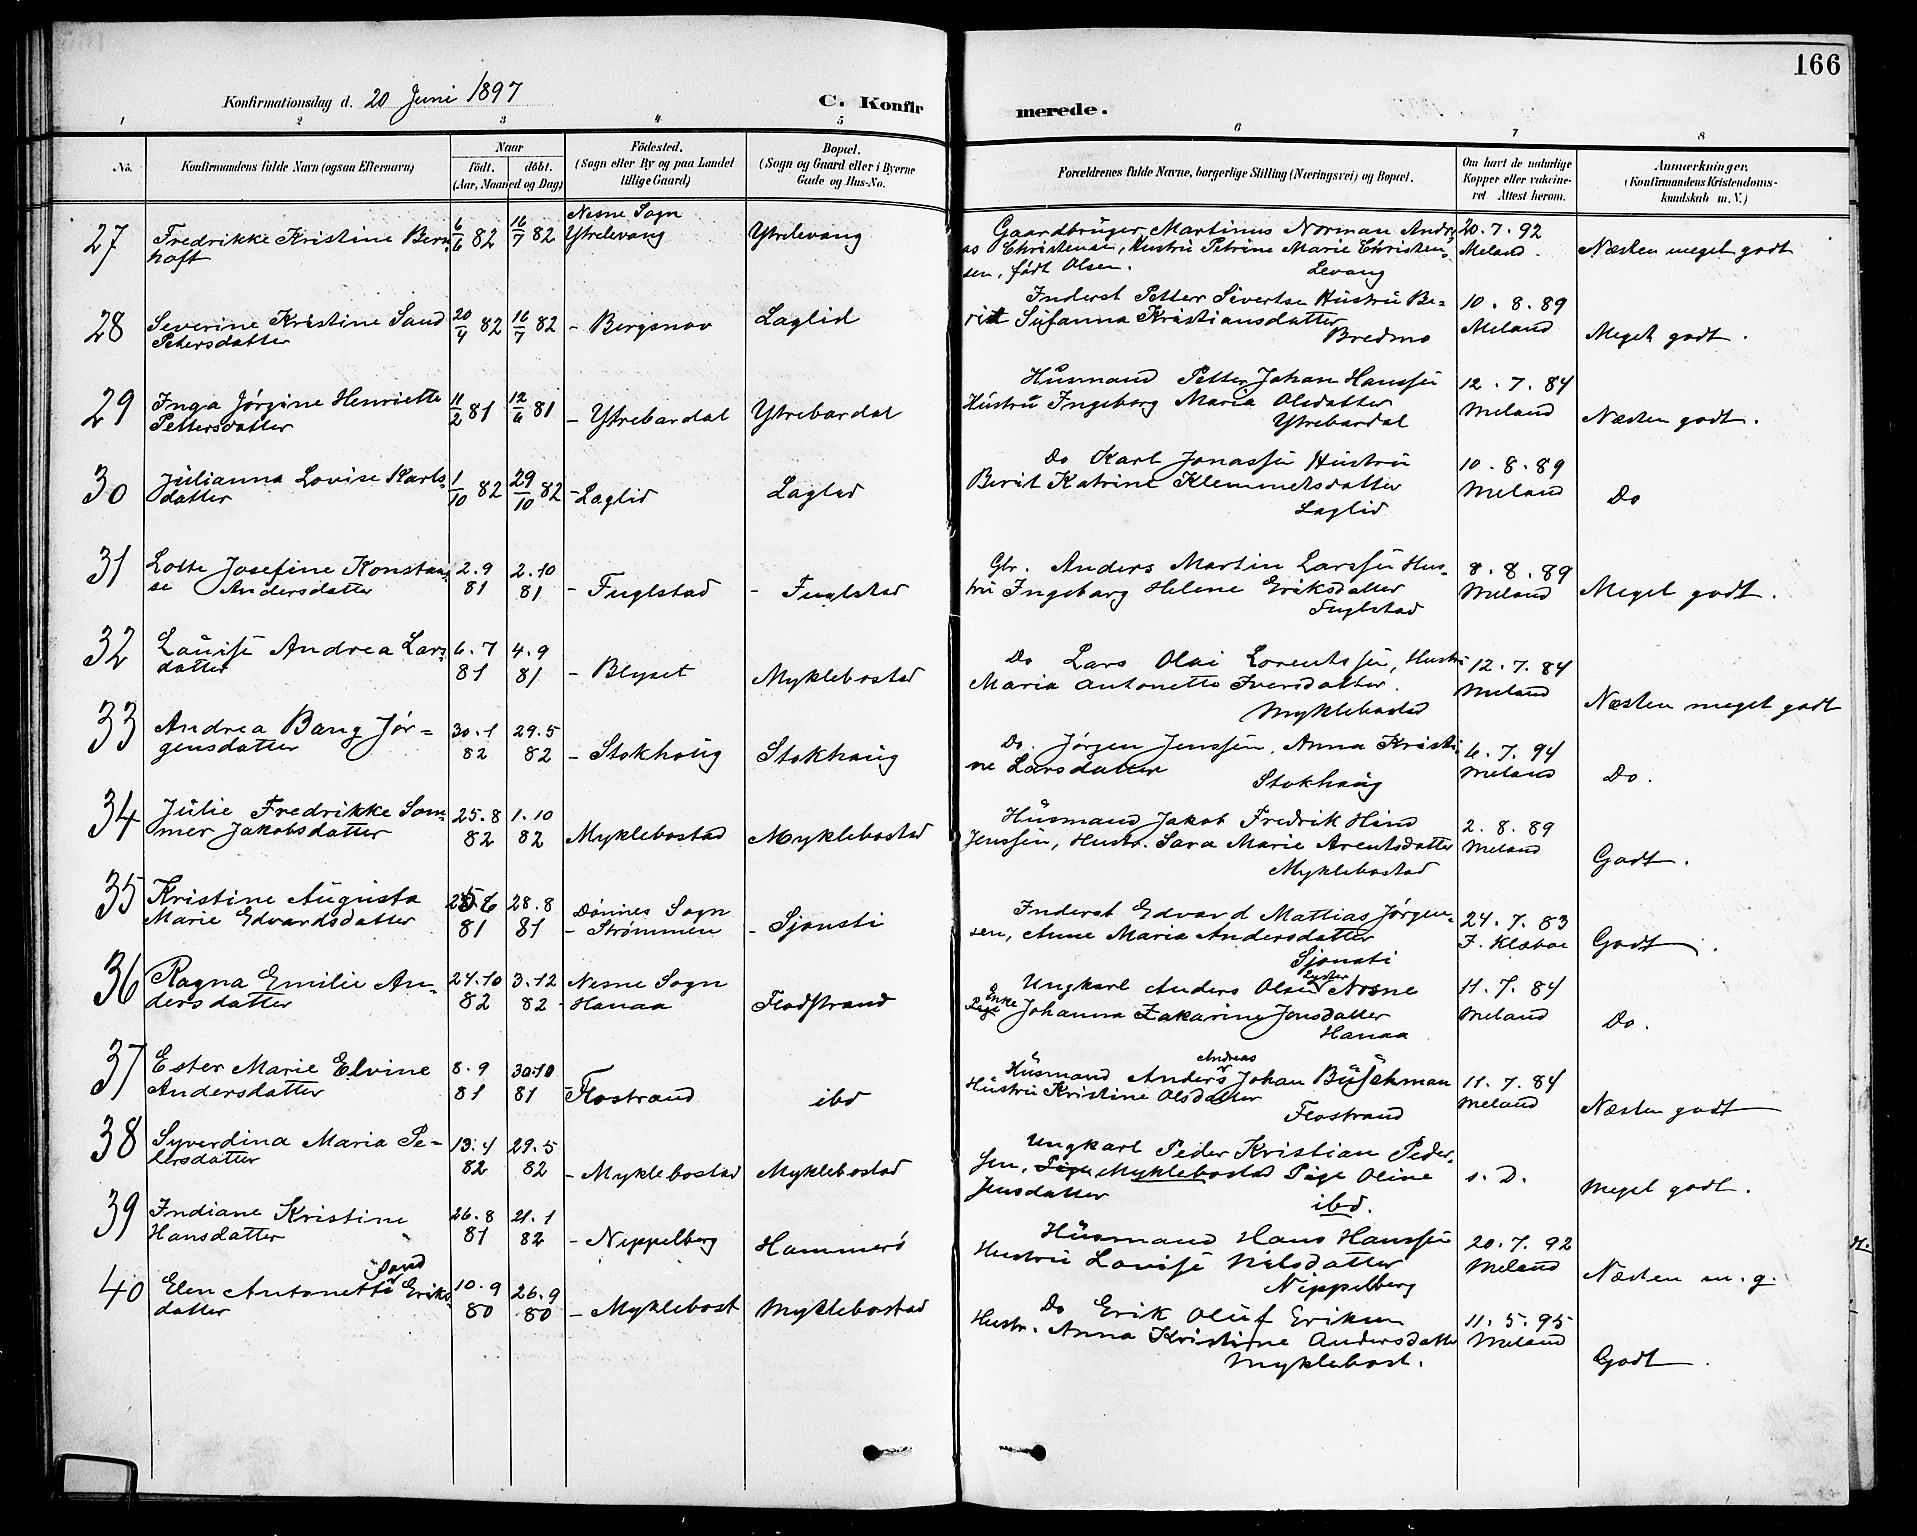 166
Konfirmationsdag d. 20 Juni 1897
C. Konfir
merede.
1 2 3 4 5 6 7 8
No. Konfirmandens fulde Navn (ogsaa Efternavn) Naar født. døbt. (Aar, Maaned og Dag) Fødested. (Sogn eller By og paa Landet tillige Gaard) Bopæl. (Sogn og Gaard eller i Byerne Gade og Hus-No.
Forældrenes fulde Navne, borgerlige Stilling (Næringsvei) og Bopæl. Om havt de naturlige Kopper eller vakcineret. Attest herom. Anmærkninger, (Konfirmandens Kristendomskundskab m. V.)
27 Fredrikke Kristine Bern
hoft
6/6 82 16/7 82
Nesne Sogn
Ytrelevang
Ytrelevang
Gaardbruger Martinus Norman Andre
as Christensen, Hustru Petrine Marie Christen-
sen, født Olsen. Levang
20.7.92
Meland
Næsten meget godt
28 Severine Kristine Sand
Petersdatter
20/4 82 16/7 82
- Bergsnov
Laglid
Inderst Petter Sivertse Hustru Be-
rit Susanna Kristiansdatter
Bredmo
10.8.89
Meland
Meget godt.
29 Inga Jørgine Henriette
Pettersdatter
11/2 81 12/6 81
- Ytrebardal
Ytrebardal
Husmand Petter Johan Hanssen
Hustru Ingeborg Maria Olsdatter
Ytrebardal
12.7.84
Meland
Næsten godt.
30 Julianna Lovise Karls-
datter
1/10 82 29/10 82
- Laglid
Laglid
Do Karl Jonassen Hustru
Berit Katrine Klemmetsdatter
Laglid
10.8.89
Meland
Do
31 Lotte Josefine Konstan-
se Andersdatter
2.9 81 2.10 81
- Fuglstad
- Fuglstad
Gbr. Anders Martin Larssen Hus-
tru Ingeborg Helene Eriksdatter
Fuglstad
8.8.89
Meland
Meget godt.
32 Louise Andrea Lars-
datter
6.7 81 4.9 81
- Blyset
Myklebostad
Do Lars Olai Lorentssen, Hustru
Maria Antonette Iversdatter.
Myklebostad
12.7.84
Meland
Næsten meget godt
33 Andrea Bang Jør-
gensdatter
30.1 82 29.5 82
- Stokhaug
Stokhaug
Do. Jørgen Jenssen, Anna Kristi-
ne Larsdatter
Stokhaug
6.7.94
Meland
Do.
34 Julie Fredrikke Som-
mer Jakobsdatter
25.8 82 1.10 82
Myklebostad
Myklebostad
Husmand Jakob Fredrik Hind
Jenssen, Hustr. Sara Marie Arentsdatter
Myklebostad
2.8.89
Meland
Godt.
35 Kristine Augusta
Marie Edvardsdatter
81 28.8 81
Dønnes Sogn
- Strømmen
- Sjonsti
Inderst Edvard Mattias Jørgen-
sen, Anne Maria Andersdatter
Sjonsti
24.7.83
F. Klæboe
Godt.
36 Ragna Emilie An-
dersdatter
24.10 82 3.12 82
Nesne Sogn
- Hanaa
Flodstrand
Ungkarl Anders Olsen Nesne
Enke
Pige Johanna Zakarine Jonsdatter
Hanaa
11.7.84
Meland
Do.
37 Ester Marie Elvine
Andersdatter
8.9 81 30.10 81
- Flostrand
ibd
Andreas
Husmand Anders Johan Büschman
Hustru Kristine Olsdatter
Flostrand
11.7.84
Meland
Næsten godt
38 Syverdina Maria Pe-
tersdatter
13.4 82 29.5 82
- Myklebostad
Myklebostad
Ungkarl Peder Kristian Peder-
sen, Pige Myklebostad Pige Oline
Jensdatter ibd.
s. D.
Meget godt.
39 Indiane Kristine
Hansdatter
26.8 81 21.1 82
- Nippelberg
Hammerø
Husmand Hans Hanssen
Hustru Lovise Nilsdatter
Nippelberg
20.7.92
Meland
Næsten m. g.
40 Sand
Elen Antonette Eriks-
datter
10.9 80 26.9 80
- Myklebost
Myklebostad
Do Erik Oluf Eriksen
Hustr. Anna Kristine Andersdatter
Myklebost.
11.5.95
Meland
Godt.